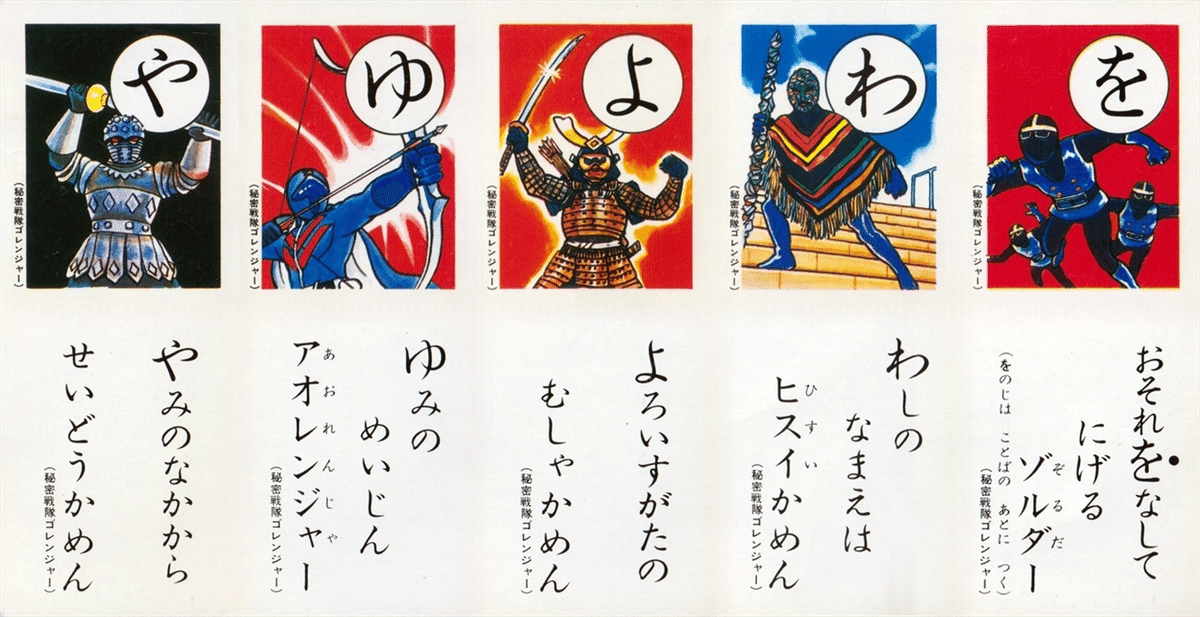 や
(秘密戦隊ゴレンジャー)
ゆ
(秘密戦隊ゴレンジャー)
よ
(秘密戦隊ゴレンジャー)
わ
(秘密戦隊ゴレンジャー)
を
(秘密戦隊ゴレンジャー)
やみのなかから
せいどうかめん
(秘密戦隊ゴレンジャー)
ゆみの
めいじん
アオレンジャー
あおれんじゃ
(秘密戦隊ゴレンジャー)
よろいすがたの
むしゃかめん
(秘密戦隊ゴレンジャー)
わしの
なまえは
ヒスイかめん
ひすい
(秘密戦隊ゴレンジャー)
おそれをなして
にげる
ゾルダー
ぞるだ
(をのじは ことばの あとに つく)
(秘密戦隊ゴレンジャー)